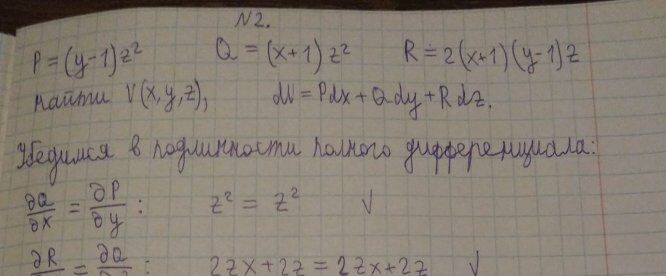 N2.
P = (y-1)z² Q = (x+1)z² R = 2(x+1)(y-1)z
Найти V(x,y,z), dU = Pdx + Qdy + Rdz.
Убедимся в подлинности полного дифференциала:
∂Q/∂x = ∂P/∂y : z² = z² √
∂R/ = ∂Q/ : 2zx+2z = 2zx+2z √